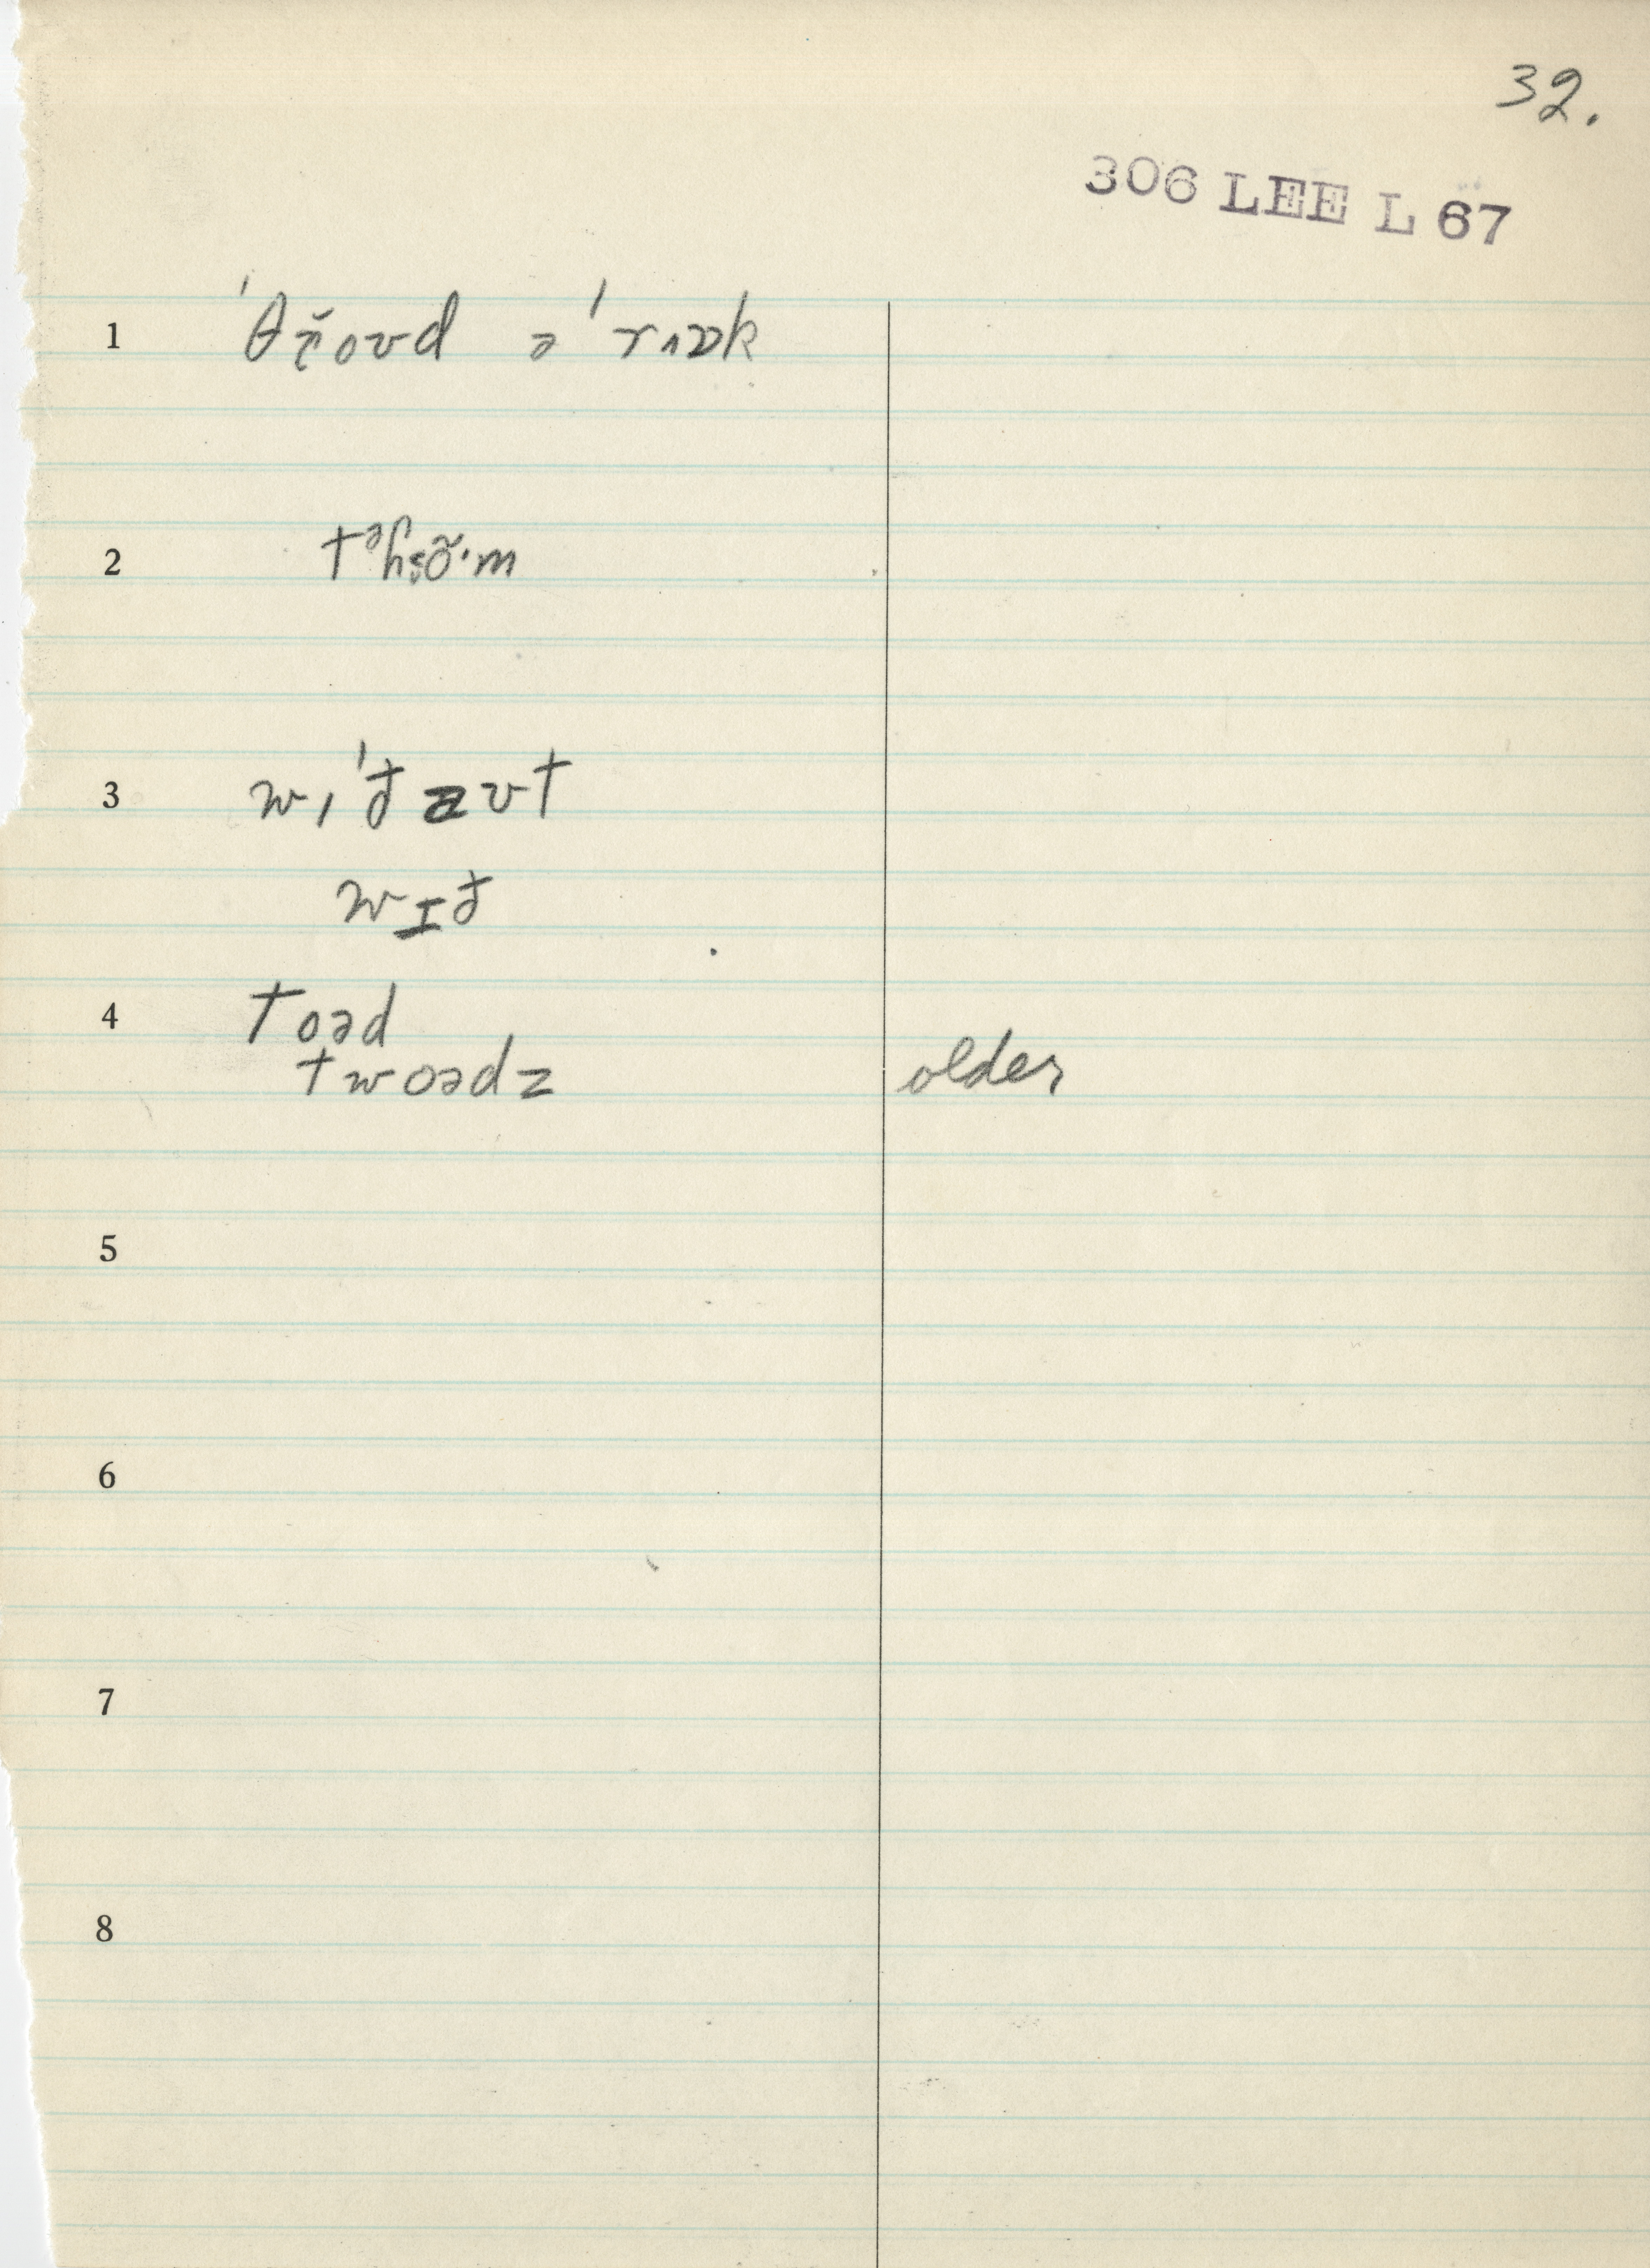 32.
306 LEE L 67
1 ˈθɾ̌oʊd əˈrɪɒk
2 tᵊɦs̬õ·m
3 wɪˈðaʊt
wɪð
4 toəd
twoədz older
5
6
7
8